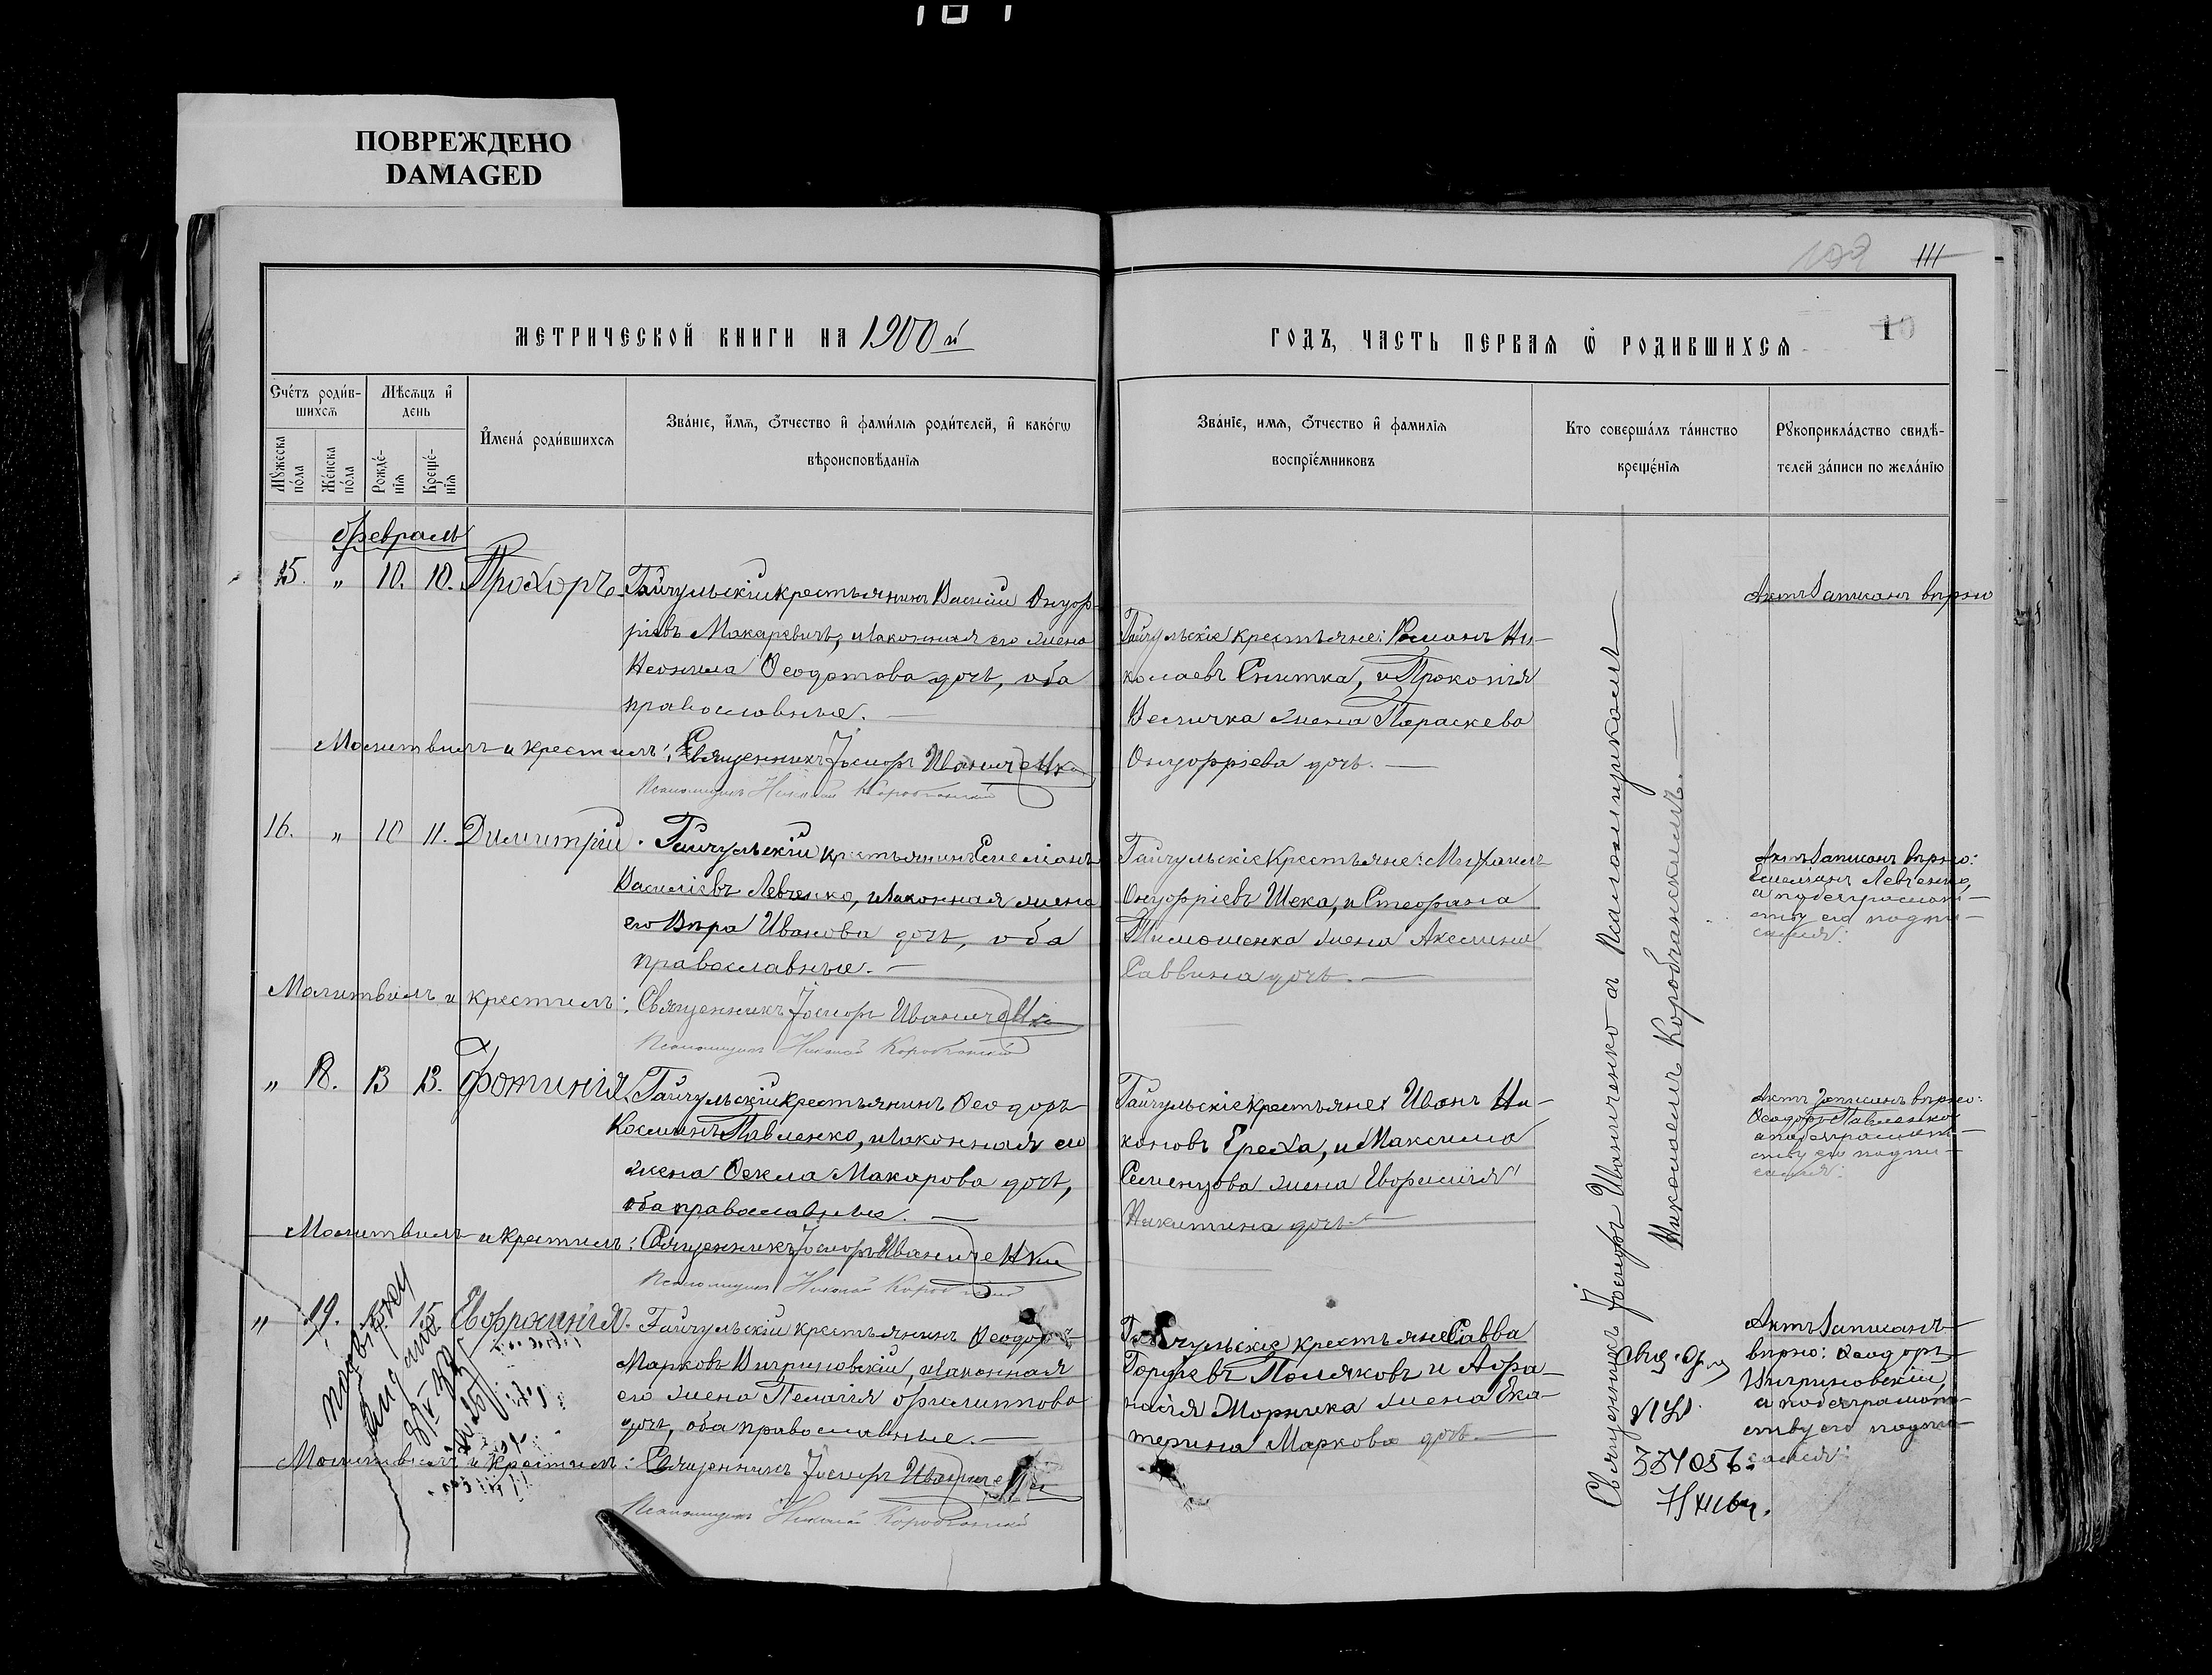 ПОВРЕЖДЕНО
DAMAGED
111
МЕТРИЧЕСКОЙ КНИГИ НА 1900 й
ГОДЪ, ЧАСТЬ ПЕРВАѦ Ѽ РОДИВШИХСѦ
10
Счетъ родив-
шихсѧ
Мѣсѧцъ и
день
Мꙋжеска
пола
Женска
пола
Рожде-
нїѧ
Креще-
нїѧ
Имена родившихсѧ
Званїе, имѧ, ѻтчество и фамилїѧ родителей, и какогѡ
вѣроисповѣданїѧ
Званїе, имѧ, ѻтчество и фамилїѧ
воспрїемниковъ
Кто совершалъ таинство
крещенїѧ
Рꙋкоприкладство свидѣ-
телей записи по желанїю
Февраль
15. " 10. 10. Прохоръ.
Гайчульскій крестьянинъ Василій Онуф-
ріевъ Макаревичъ, и законная его жена
Неонила Ѳеодотова дочь, оба
православные. —
Молитвилъ и крестилъ: Священникъ Іосифъ Иваниченко
Псаломщикъ Николай Коробчанскій
Гайчульскіе крестьяне: Романъ Ни-
колаевъ Снитка, и Прокопія
Величка жена Параскева
Онуфріева дочь. —
Актъ записанъ вѣрно
16. " 10 11. Димитрій.
Гайчульскій крестьянинъ Емеліанъ
Василіевъ Левченко, и законная жена
его Вѣра Иванова дочь, оба
православные. —
Молитвилъ и крестилъ: Священникъ Іосифъ Иваниченко
Псаломщикъ Николай Коробчанскій
Гайчульскіе крестьяне: Михаилъ
Онуфріевъ Шека, и Стефана
Тимошенка жена Акелина
Саввина дочь. —
Актъ записанъ вѣрно:
Емеліанъ Левченко,
а по безграмот-
ству его подпи-
сался:
" 18. 13 13. Фотинія.
Гайчульскій крестьянинъ Ѳеодоръ
Косминъ Павленко, и законная его
жена Ѳекла Макарова дочь,
оба православные. —
Молитвилъ и крестилъ: Священникъ Іосифъ Иваниченко
Псаломщикъ Николай Коробчанскій
Гайчульскіе крестьяне: Иванъ Ни-
коновъ Ереха, и Максима
Семенцова жена Евфимія
Никитина дочь. —
Актъ записанъ вѣрно:
Ѳеодоръ Павленко
а по безграмот-
ству его подпи-
сался:
" 19. 15. Евфросинія.
Гайчульскій крестьянинъ Ѳеодоръ
Марковъ Вигриновскій, и законная
его жена Пелагія Филиппова
дочь, оба православные. —
Молитвилъ и крестилъ: Священникъ Іосифъ Иваниченко
Псаломщикъ Николай Коробчанскій
Гайчульскіе крестьяне Савва
Поляковъ и Афа-
насія Морника жена Ека-
терина Маркова дочь. —
Священникъ Іосифъ Иваниченко съ Псаломщикомъ
Николаемъ Коробчанскимъ. —
Актъ записанъ
вѣрно: Ѳеодоръ
Вигриновскій,
а по безграмот-
ству его подпи-
сался: